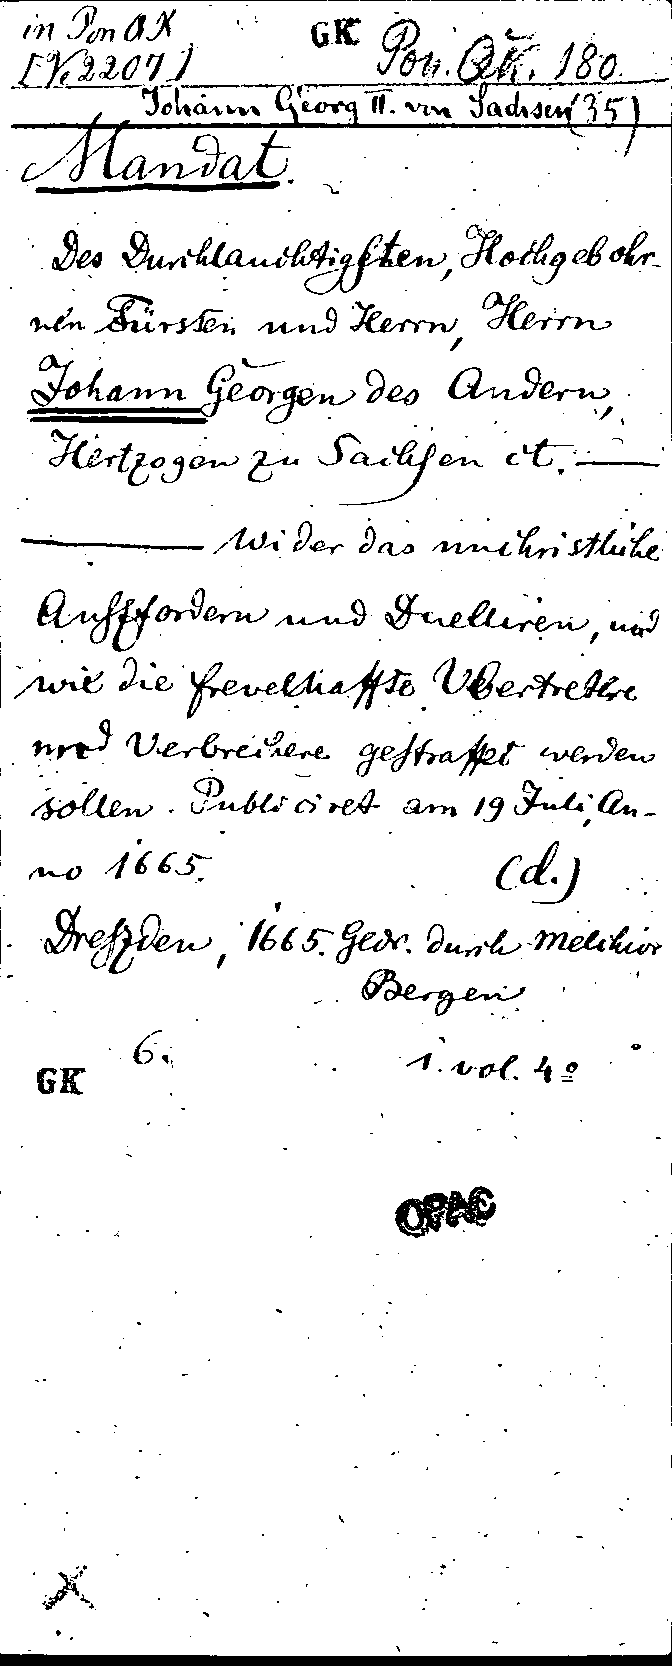 in Pon QK GK Pon. QK. 180.
[V. 2207]
Johann Georg II. von Sachsen (35)
Mandat.
Des Durchlauchtigsten, Hochgebohr-
nen Fürsten und Herrn, Herrn
Johann Georgen des Andern,
Hertzogen zu Sachsen et. —
— Wider das unchristliche
Außfordern und Duelliren, und
wie die frevelhaffte Ubertretere
und Verbrechere gestraffet werden
sollen. Publiciret am 19 Juli, An-
no 1665. (d.)
Dreßden, 1665. Gedr. durch Melchior
Bergen
6. 1. vol. 4º
GK
OPAC